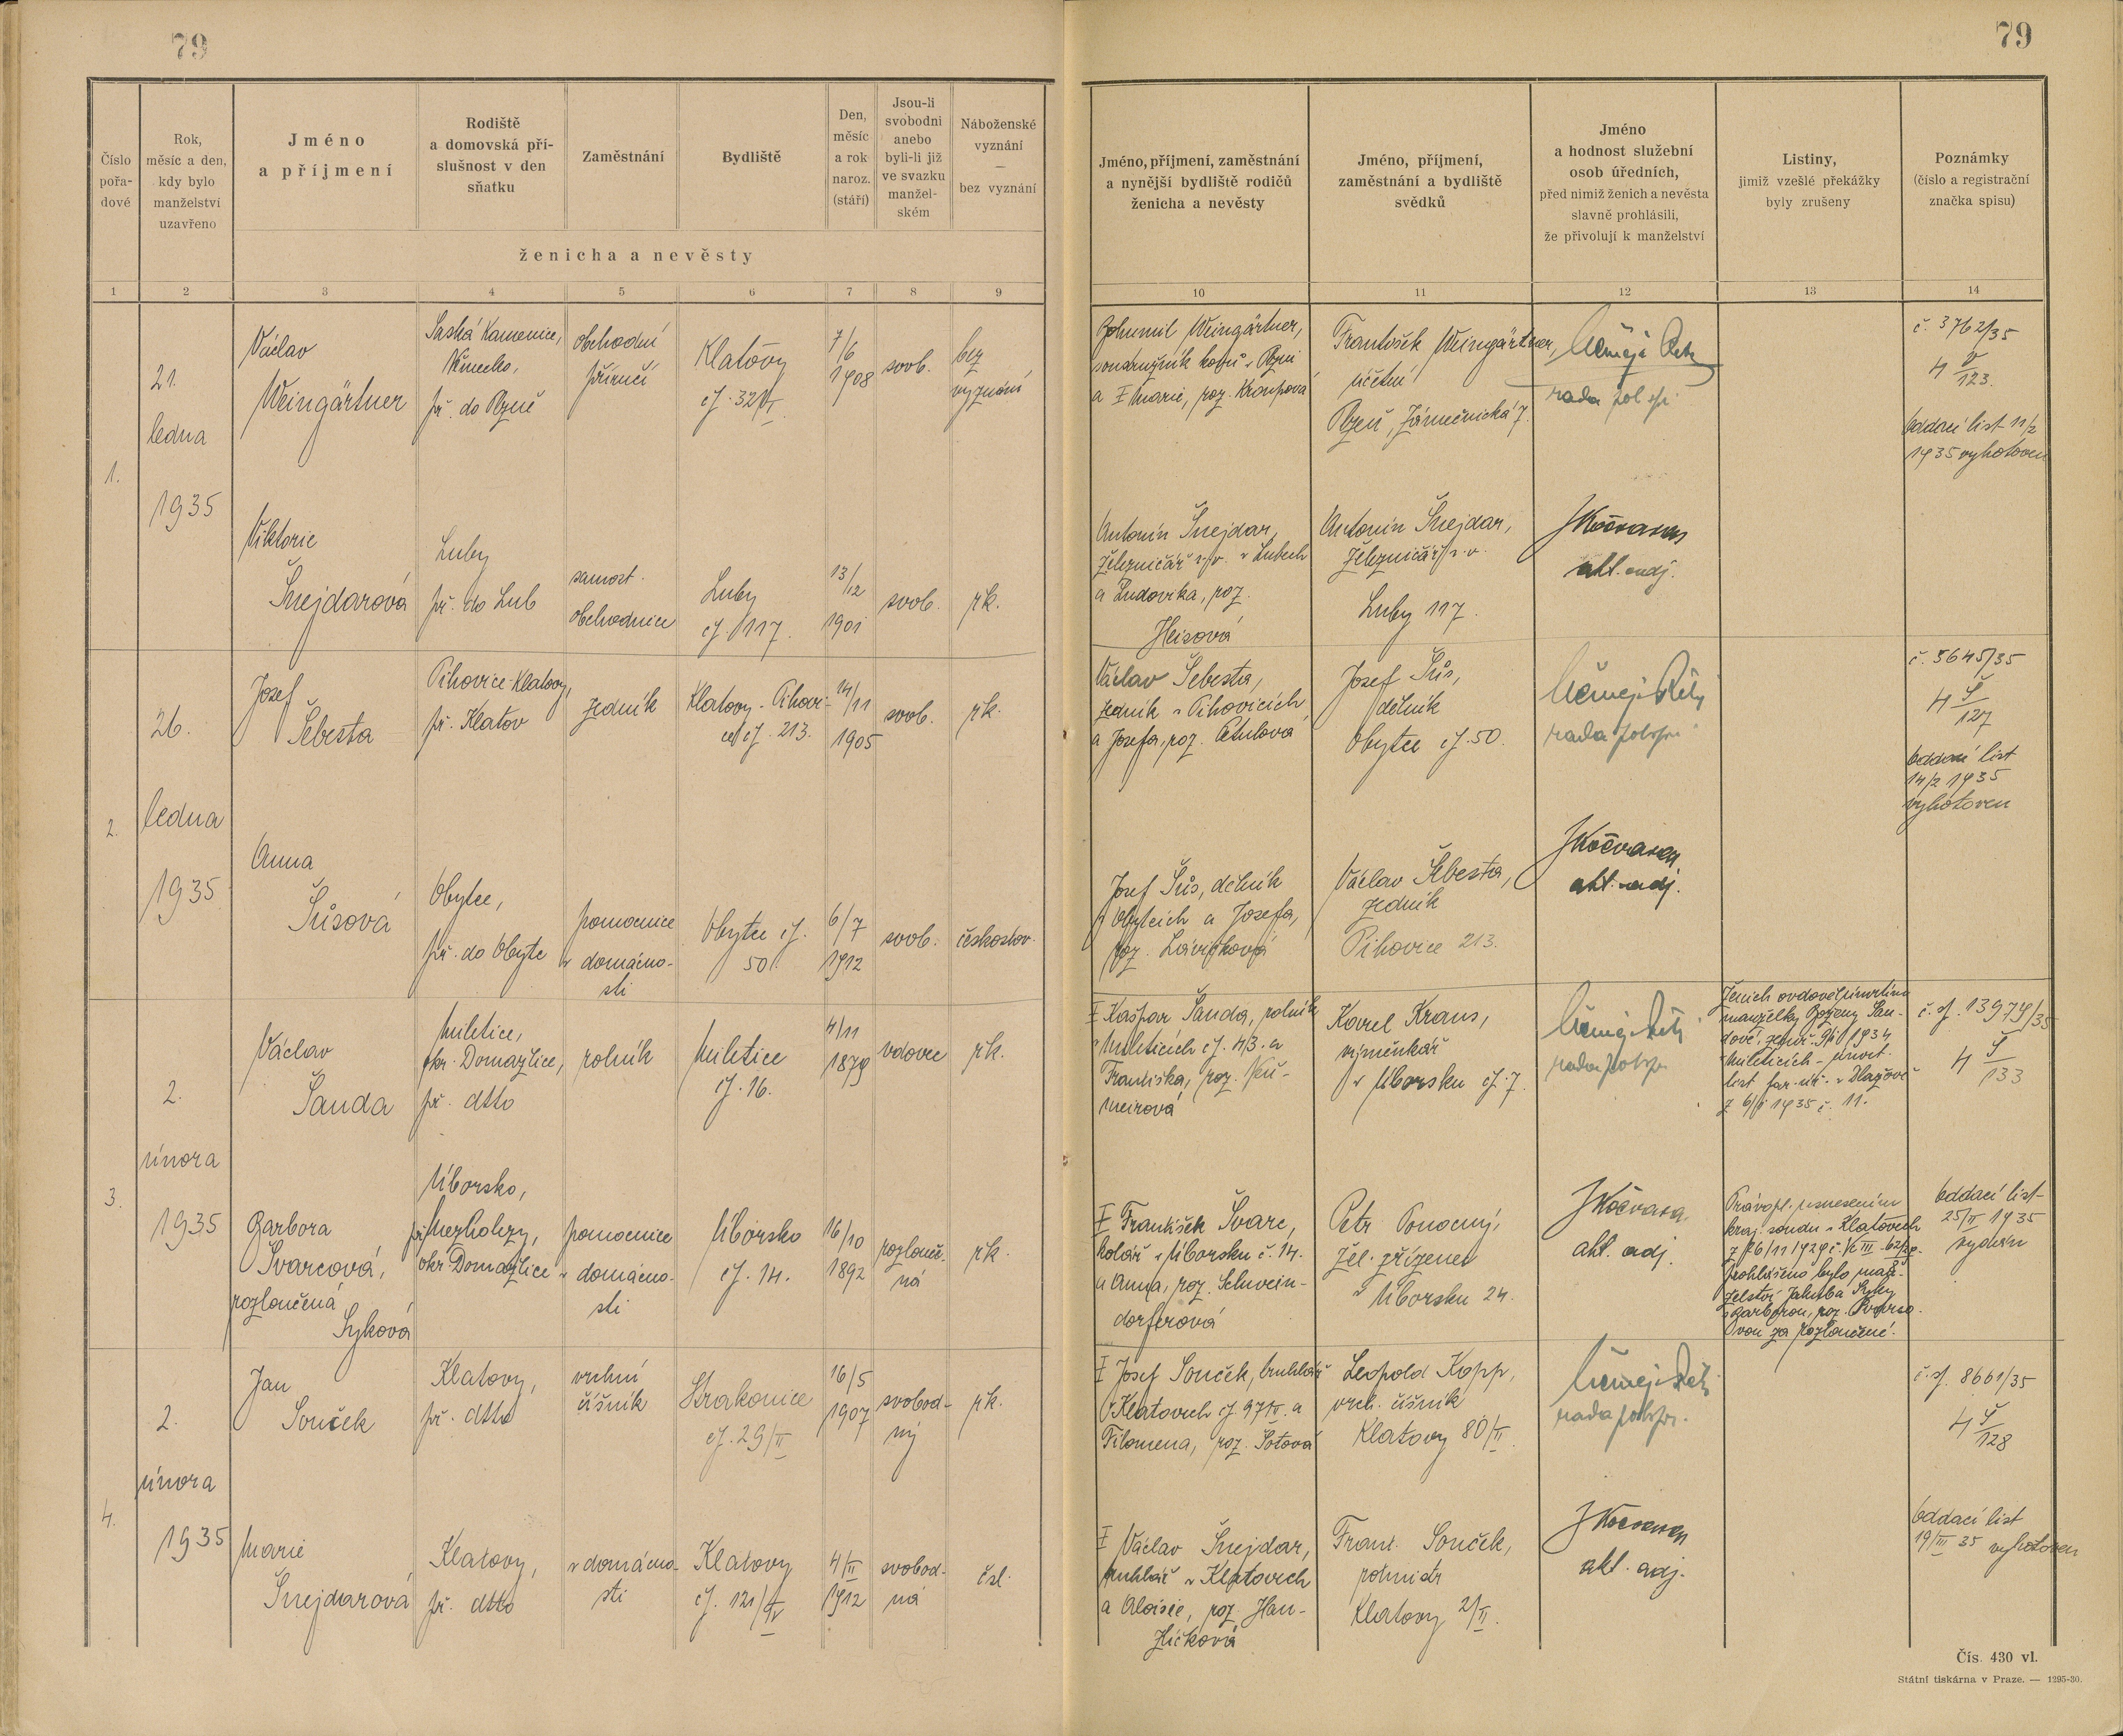 79
79
Číslo
pořa-
dové
Rok,
měsíc a den,
kdy bylo
manželství
uzavřeno
Jméno
a příjmení
Rodiště
a domovská pří-
slušnost v den
sňatku
Zaměstnání
Bydliště
Den,
měsíc
a rok
naroz.
(stáří)
Jsou-li
svobodni
anebo
byli-li již
ve svazku
manžel-
ském
Náboženské
vyznání
—
bez vyznání
ženicha a nevěsty
Jméno, příjmení, zaměstnání
a nynější bydliště rodičů
ženicha a nevěsty
Jméno, příjmení,
zaměstnání a bydliště
svědků
Jméno
a hodnost služební
osob úředních,
před nimiž ženich a nevěsta
slavně prohlásili,
že přivolují k manželství
Listiny,
jimiž vzešlé překážky
byly zrušeny
Poznámky
(číslo a registrační
značka spisu)
1 2 3 4 5 6 7 8 9 10 11 12 13 14
1.
21.
ledna
1935
Václav
Weingärtner
Saská Kamenice,
Německo,
př. do Plzně
obchodní
příručí
Klatovy
čj. 32/VI.
7/6
1908
svob.
bez
vyznání
Bohumil Weingärtner,
soustružník kovů v Plzni
a Ŧ Marie, roz. Kroupová
František Weingärtner,
účetní
Plzeň, Zámečnická 7.
rada pol. spr.
č. 3762/35
4 V/123.
oddací list 11/2
1935 vyhotoven
Viktorie
Šnejdarová
Luby
př. do Lub
samost.
obchodnice
Luby
čj. 117.
13/12
1901
svob.
řk.
Antonín Šnejdar,
železničář v. v. v Lubech
a Ludovika, roz.
Heisová
Antonín Šnejdar,
železničář v. v.
Luby 117.
akt. adj.
2.
26.
ledna
1935
Josef
Šebesta
Pihovice-Klatovy,
př. Klatov
zedník
Klatovy - Pihovi-
ce čj. 213.
14/11
1905
svob.
řk.
Václav Šebesta,
zedník v Pihovicích
a Josefa, roz. Petulová
Josef Šůs,
dělník
Obytce čj. 50.
rada pol. spr.
č. 5645/35
4 Š/127
oddací list
14/2 1935
vyhotoven
Anna
Šůsová
Obytce,
př. do Obytc
pomocnice
v domácno-
sti
Obytce čj.
50.
6/7
1912
svob.
českoslov.
Josef Šůs, dělník
v Obytcích a Josefa,
roz. Lávičková
Václav Šebesta,
zedník
Pihovice 213.
akt. adj.
3.
2.
února
1935
Václav
Šanda
Miletice,
okr. Domažlice,
př. dtto
rolník
Miletice
čj. 16.
4/11
1879
vdovec
řk.
Ŧ Kašpar Šanda, rolník
v Mileticích čj. 43. a
Františka, roz. Küh-
meirová
Karel Kraus,
výměnkář
v Úborsku čj. 7.
rada pol. spr.
Ženich ovdověl úmrtím
manželky Boženy Šan-
dové, zemř. 9/10 1934
v Mileticích - úmrt.
list far. úř. v Dlažově
z 6/1 1935 č. 11.
č. j. 13974/35
4 Š/133
Barbora
Švarcová,
rozloučená
Syková
Úborsko,
př. Mezholezy,
okr. Domažlice
pomocnice
v domácno-
sti
Úborsko
čj. 14.
16/10
1892
rozlouče-
ná
řk.
Ŧ František Švarc,
kolář v Úborsku č. 14.
a Anna, roz. Schwein-
dorferová
Petr Konočný,
žel. zřízenec
v Úborsku 24.
akt. adj.
Právopl. usnesením
kraj. soudu v Klatovech
prohlášeno bylo man-
želství Jakuba Syky
s Barborou, roz. Švarco-
vou za rozloučené.
oddací list
25/II 1935
vydán
4.
2.
února
1935
Jan
Souček
Klatovy,
př. dtto
vrchní
číšník
Strakonice
čj. 29/II
16/5
1907
svobod-
ný
řk.
Ŧ Josef Souček, truhlář
v Klatovech čj. 97/IV. a
Filomena, roz. Šotová
Leopold Kopp,
vrch. číšník
Klatovy 80/II.
rada pol. spr.
č. j. 8661/35
4 Š/128
Marie
Šnejdarová
Klatovy,
př. dtto
v domácno-
sti
Klatovy
čj. 121/IV
4/II
1912
svobod-
ná
čsl.
Ŧ Václav Šnejdar,
truhlář v Klatovech
a Aloisie, roz. Han-
žlíčková
Frant. Souček,
pohnidr
Klatovy 2/II.
akt. adj.
oddací list
19/III 35 vyhotoven
Čís. 430 vl.
Státní tiskárna v Praze. — 1295-30.